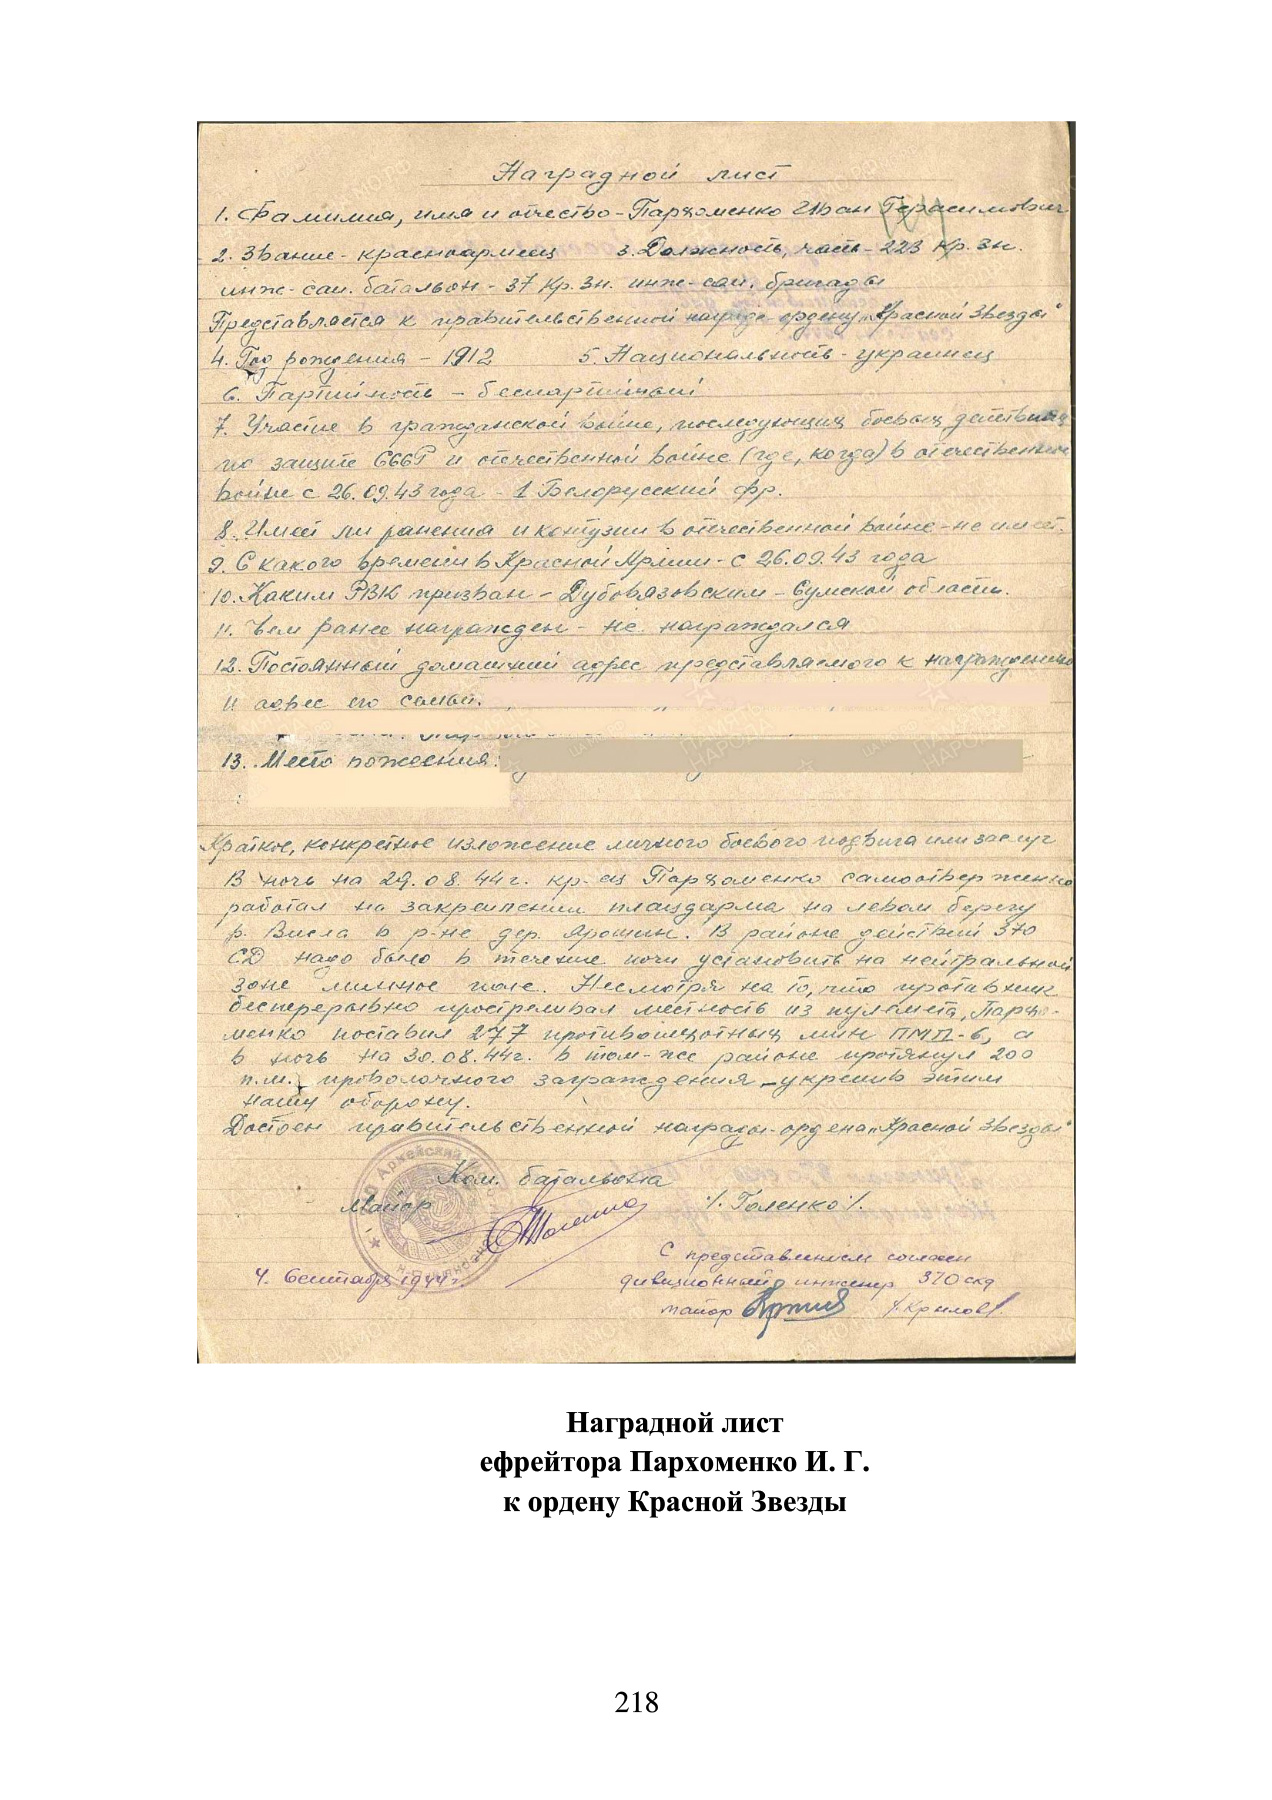 Наградной лист
1. Фамилия, имя и отчество - Пархоменко Иван Герасимович
2. Звание - красноармеец 3. Должность, часть - 223 Кр. Зн.
инж-сап. батальон - 37 Кр. Зн. инж-сап. бригады
Представляется к правительственной награде ордену „Красной Звезды"
4. Год рождения - 1912 5. Национальность - украинец
6. Партийность - беспартийный
7. Участие в гражданской войне, последующих боевых действиях
по защите СССР и отечественной войне (где, когда) в отечественной
войне с 26.09.43 года - 1 Белорусский фр.
8. Имеет ли ранения и контузии в отечественной войне - не имеет.
9. С какого времени в Красной Армии - с 26.09.43 года
10. Каким РВК призван - Дубовязовским - Сумской области.
11. Чем ранее награжден - не награждался
12. Постоянный домашний адрес представляемого к награждению
и адрес его семьи.
13. Место рожения:
Краткое, конкретное изложение личного боевого подвига или заслуг
В ночь на 29.08.44г. кр-ец Пархоменко самоотверженно
работал на закреплении плацдарма на левом берегу
р. Висла в р-не дер. Ярошин. В районе действий 370
СД надо было в течение ночи установить на нейтральной
зоне минное поле. Несмотря на то, что противник
бесперерывно простреливал местность из пулемета, Пархо-
менко поставил 277 противопехотных мин ПМД-6, а
в ночь на 30.08.44г. в том-же районе протянул 200
п.м. проволочного заграждения - укрепив этим
нашу оборону.
Достоен правительственной награды - ордена „Красной Звезды"
Ком. батальона
Майор /. Голенко /.
С представлением согласен
4. Сентября 1944г. дивизионный инженер 370 скд
майор /. Крылов /.
Наградной лист
ефрейтора Пархоменко И. Г.
к ордену Красной Звезды
218